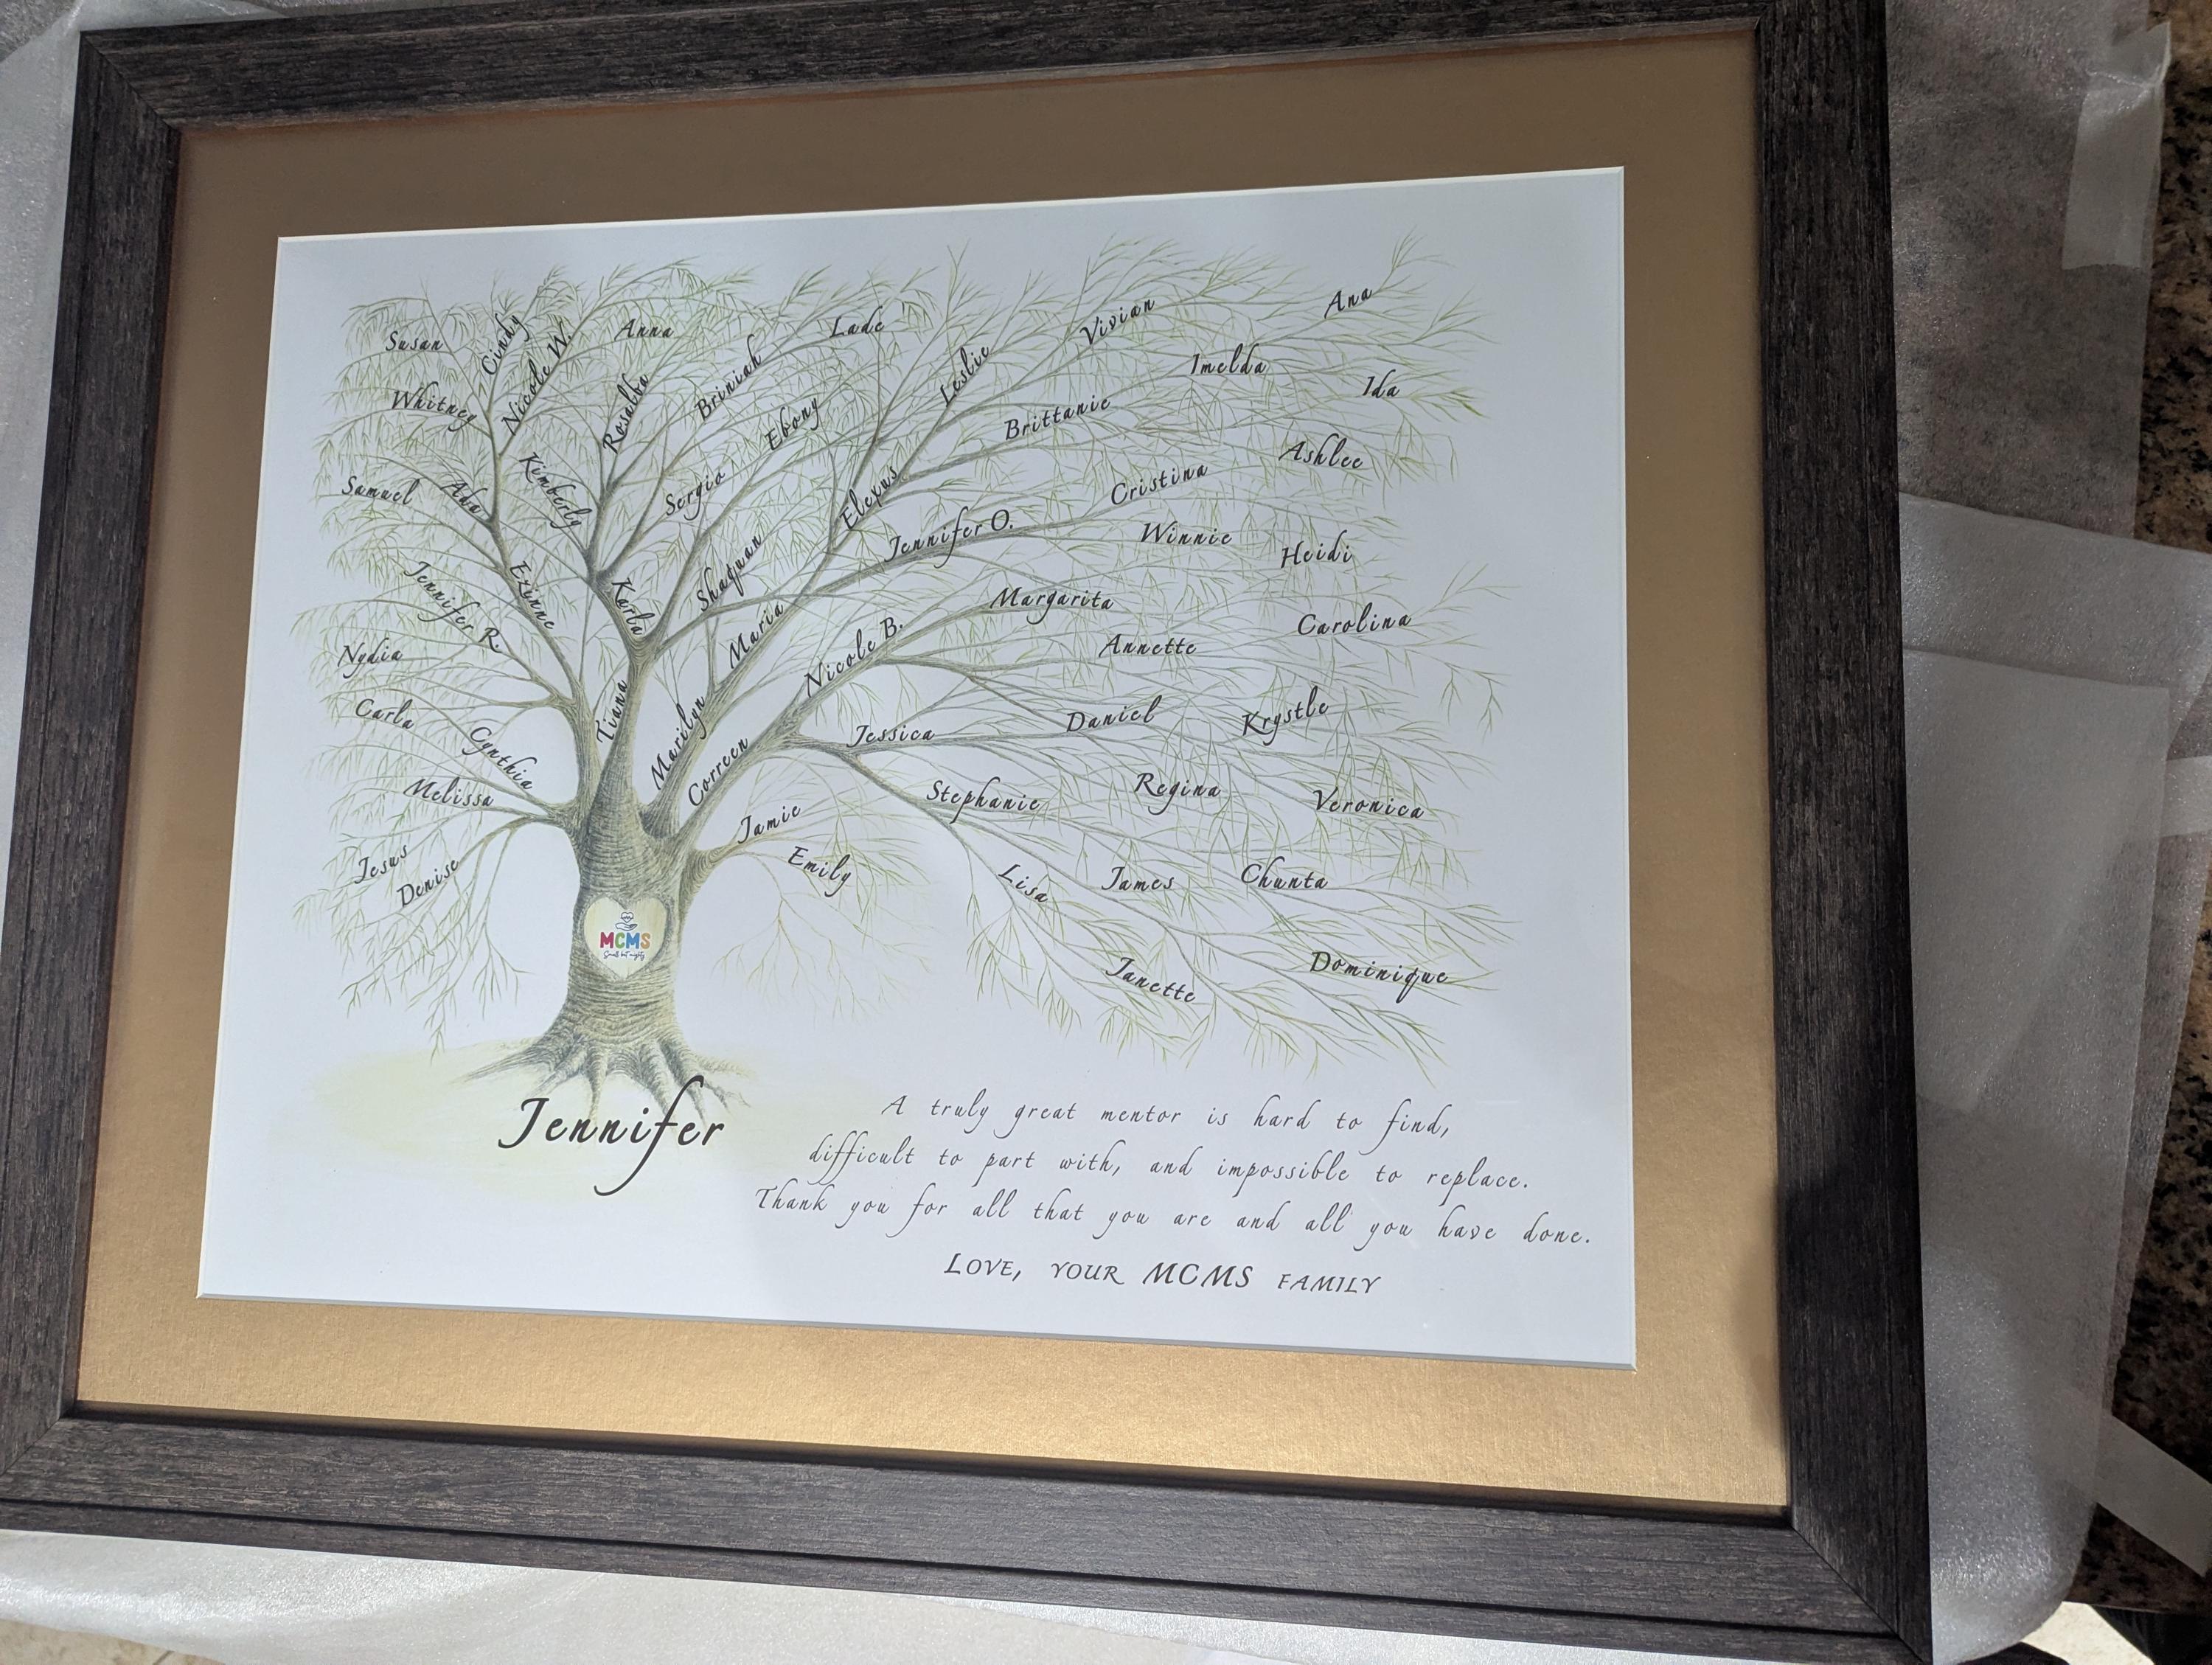 Susan
Cindy
Nicole W.
Anna
Lade
Leslie
Vivian
Ana
Whitney
Rosalba
Briniah
Ebony
Brittanie
Imelda
Ida
Samuel
Ada
Kimberly
Sergio
Elexus
Cristina
Ashlee
Jennifer R.
Ezinne
Karla
Shaquan
Jennifer O.
Winnie
Heidi
Nydia
Maria
Nicole B.
Margarita
Annette
Carolina
Carla
Cynthia
Tiana
Marilyn
Correen
Jessica
Daniel
Krystle
Melissa
Jamie
Stephanie
Regina
Veronica
Jesus
Denise
Emily
Lisa
James
Chunta
MCMS
Small but mighty
Janette
Dominique
Jennifer
A truly great mentor is hard to find,
difficult to part with, and impossible to replace.
Thank you for all that you are and all you have done.
LOVE, YOUR MCMS FAMILY